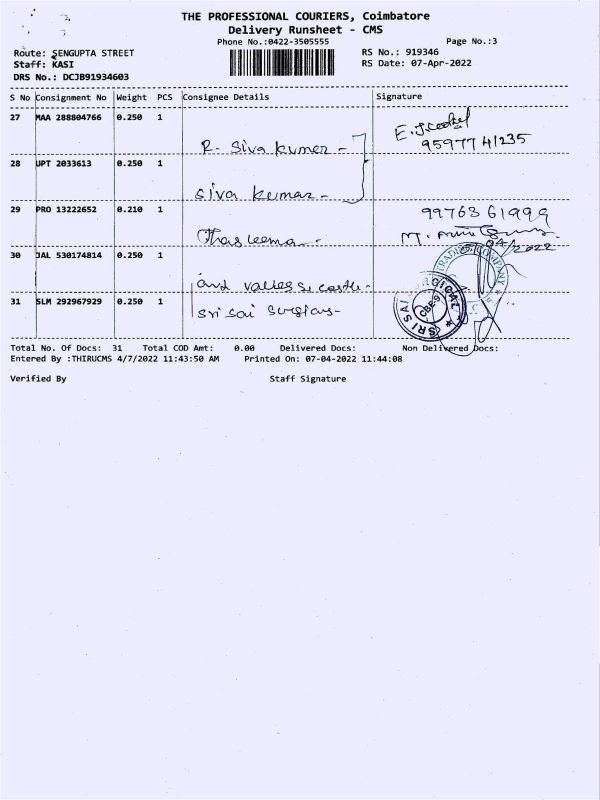 THE PROFESSIONAL COURIERS, Coimbatore
Delivery Runsheet - CMS
Phone No.:0422-3505555 Page No.:3
Route: SENGUPTA STREET RS No.: 919346
Staff: KASI RS Date: 07-Apr-2022
DRS No.: DCJB91934603
S No Consignment No Weight PCS Consignee Details Signature
27 MAA 288804766 0.250 1
R. Siva kumar - 95977 41235
28 UPT 2033613 0.250 1
Siva kumar -
29 PRO 13222652 0.210 1 99763 61999
Thasleema -
30 JAL 530174814 0.250 1 TRADING COMPANY
31 SLM 292967929 0.250 1 sri sai SRI SAI SURGICAL CBE-9
Total No. Of Docs: 31 Total COD Amt: 0.00 Delivered Docs: Non Delivered Docs:
Entered By :THIRUCMS 4/7/2022 11:43:50 AM Printed On: 07-04-2022 11:44:08
Verified By Staff Signature